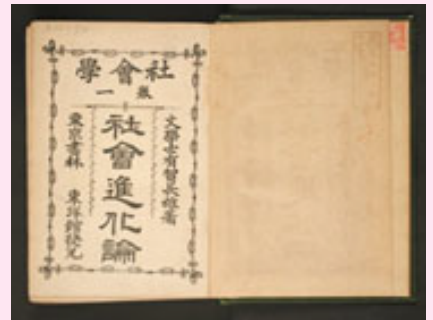 社會學
巻一
文學士有賀長雄著
社會進化論
東京書林 東洋館發兌